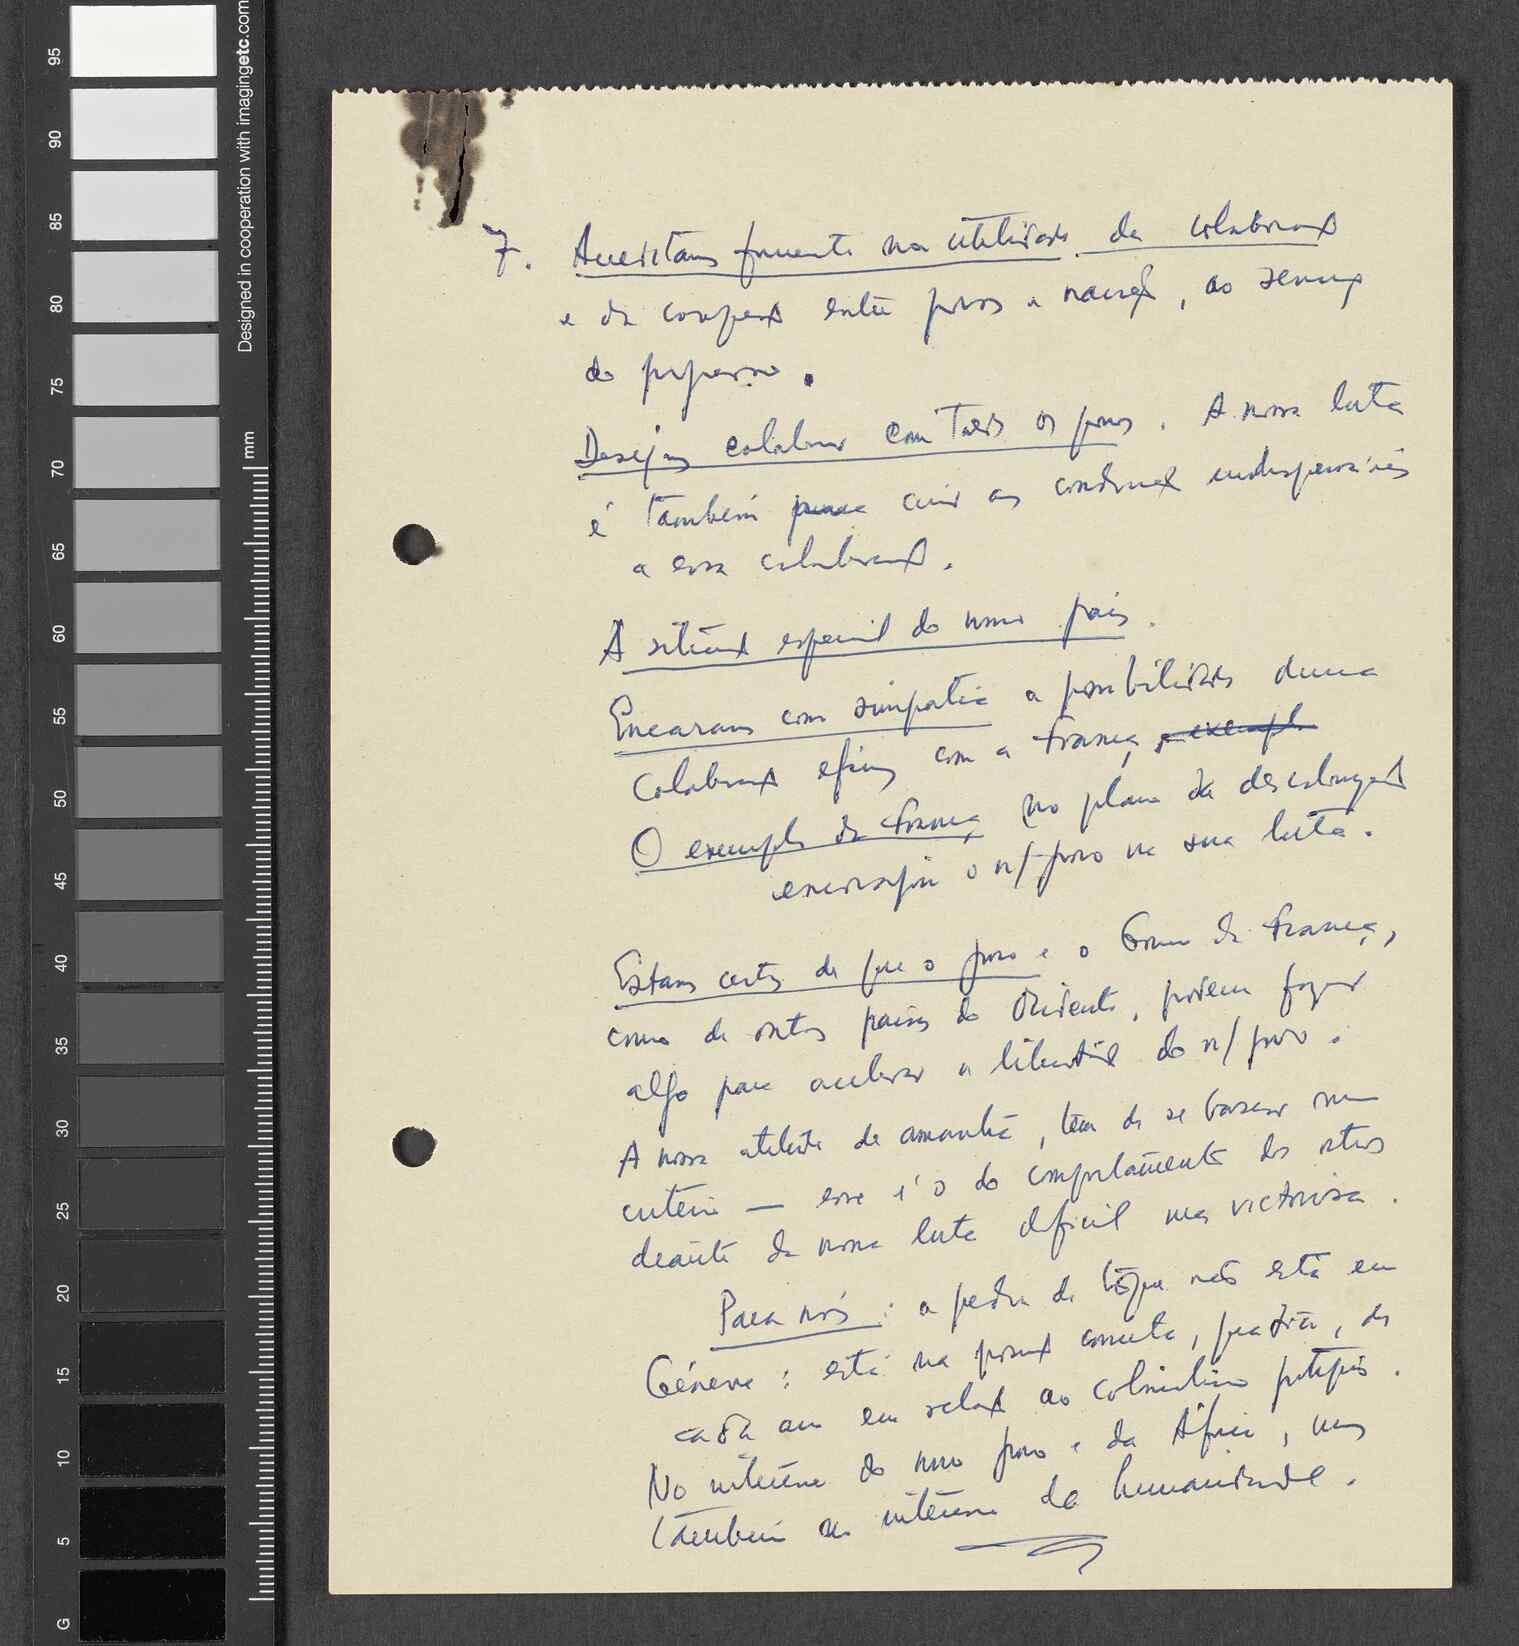 7. Acreditamos firmemente na utilidade da colaboração
e da cooperação entre povos e nações, ao serviço
do progresso.
Desejamos colaborar com todos os povos. A nossa luta
é também para criar as condições indispensáveis
a essa colaboração.
A situação especial do nosso país.
Encaramos com simpatia a possibilidade duma
colaboração eficaz com a França, o exemplo
O exemplo da França no plano da descolonização
encoraja o n/ povo na sua luta.
Estamos certos de que o povo e o Governo da França,
como de outros países do Ocidente, podem fazer
algo para acelerar a libertação do n/ povo.
A nossa atitude de amanhã, tem de se basear num
critério — esse é o do comportamento dos outros
deante da nossa luta difícil mas victoriosa.
Para nós: a pedra de toque não está em
Génève: está na posição concreta, quotidiana, de
cada um em relação ao colonialismo português.
No interesse do nosso povo e da África, mas
também no interesse da humanidade.
95
90
85
80
75
70
65
60
55
50
45
40
35
30
25
20
15
10
5
G
mm
Designed in cooperation with imagingetc.com